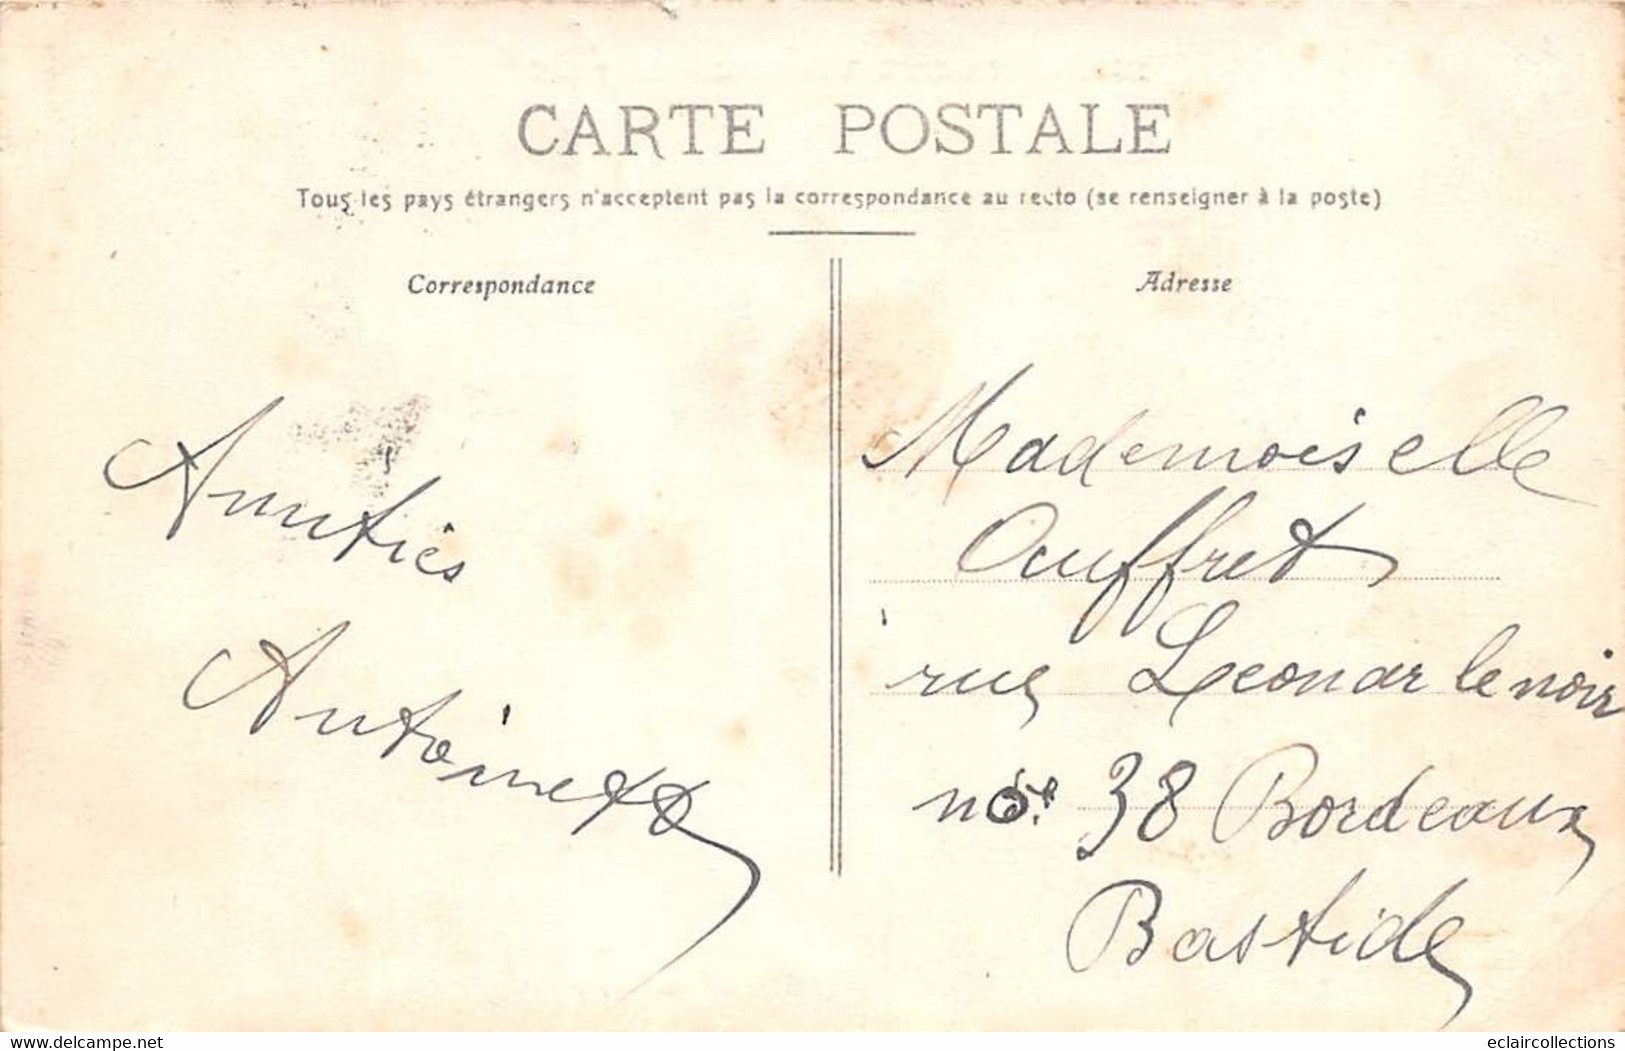 CARTE POSTALE
Tous les pays étrangers n'acceptent pas la correspondance au recto (se renseigner à la poste)
Correspondance
Adresse
Amitiés
Antoinette
Mademoiselle
Ouffret
rue Leonar lenoir
38 Bordeaux
Bastide
www.delcampe.net
eclaircollections